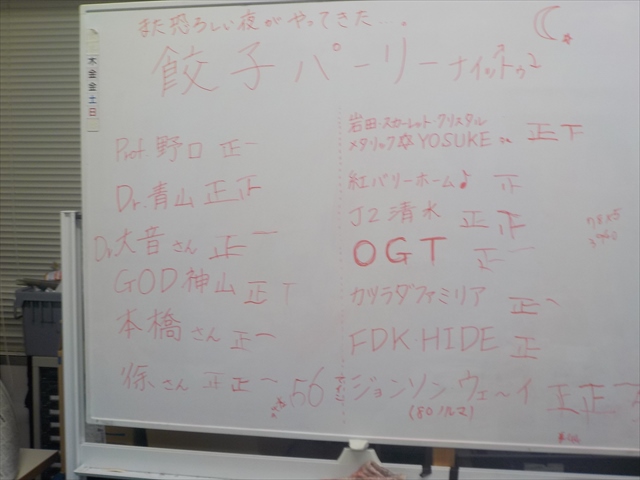 また恐ろしい夜がやってきた…。
餃子パーリーナイットゥ
木金金土日
Prof. 野口 正一
Dr. 青山 正正
Dr. 大音さん 正一
GOD 神山 正T
本橋さん 正一
徐さん 正正一
56
岩田・スカーレット・クリスタル
メタリック卒 YOSUKE 正下
紅バリーホーム♪ 正
J2 清水 正正
OGT 正一
カツラダファミリア 正
FDK HIDE 正
ジョンソン・ウェ〜イ 正正
(80ノルマ)